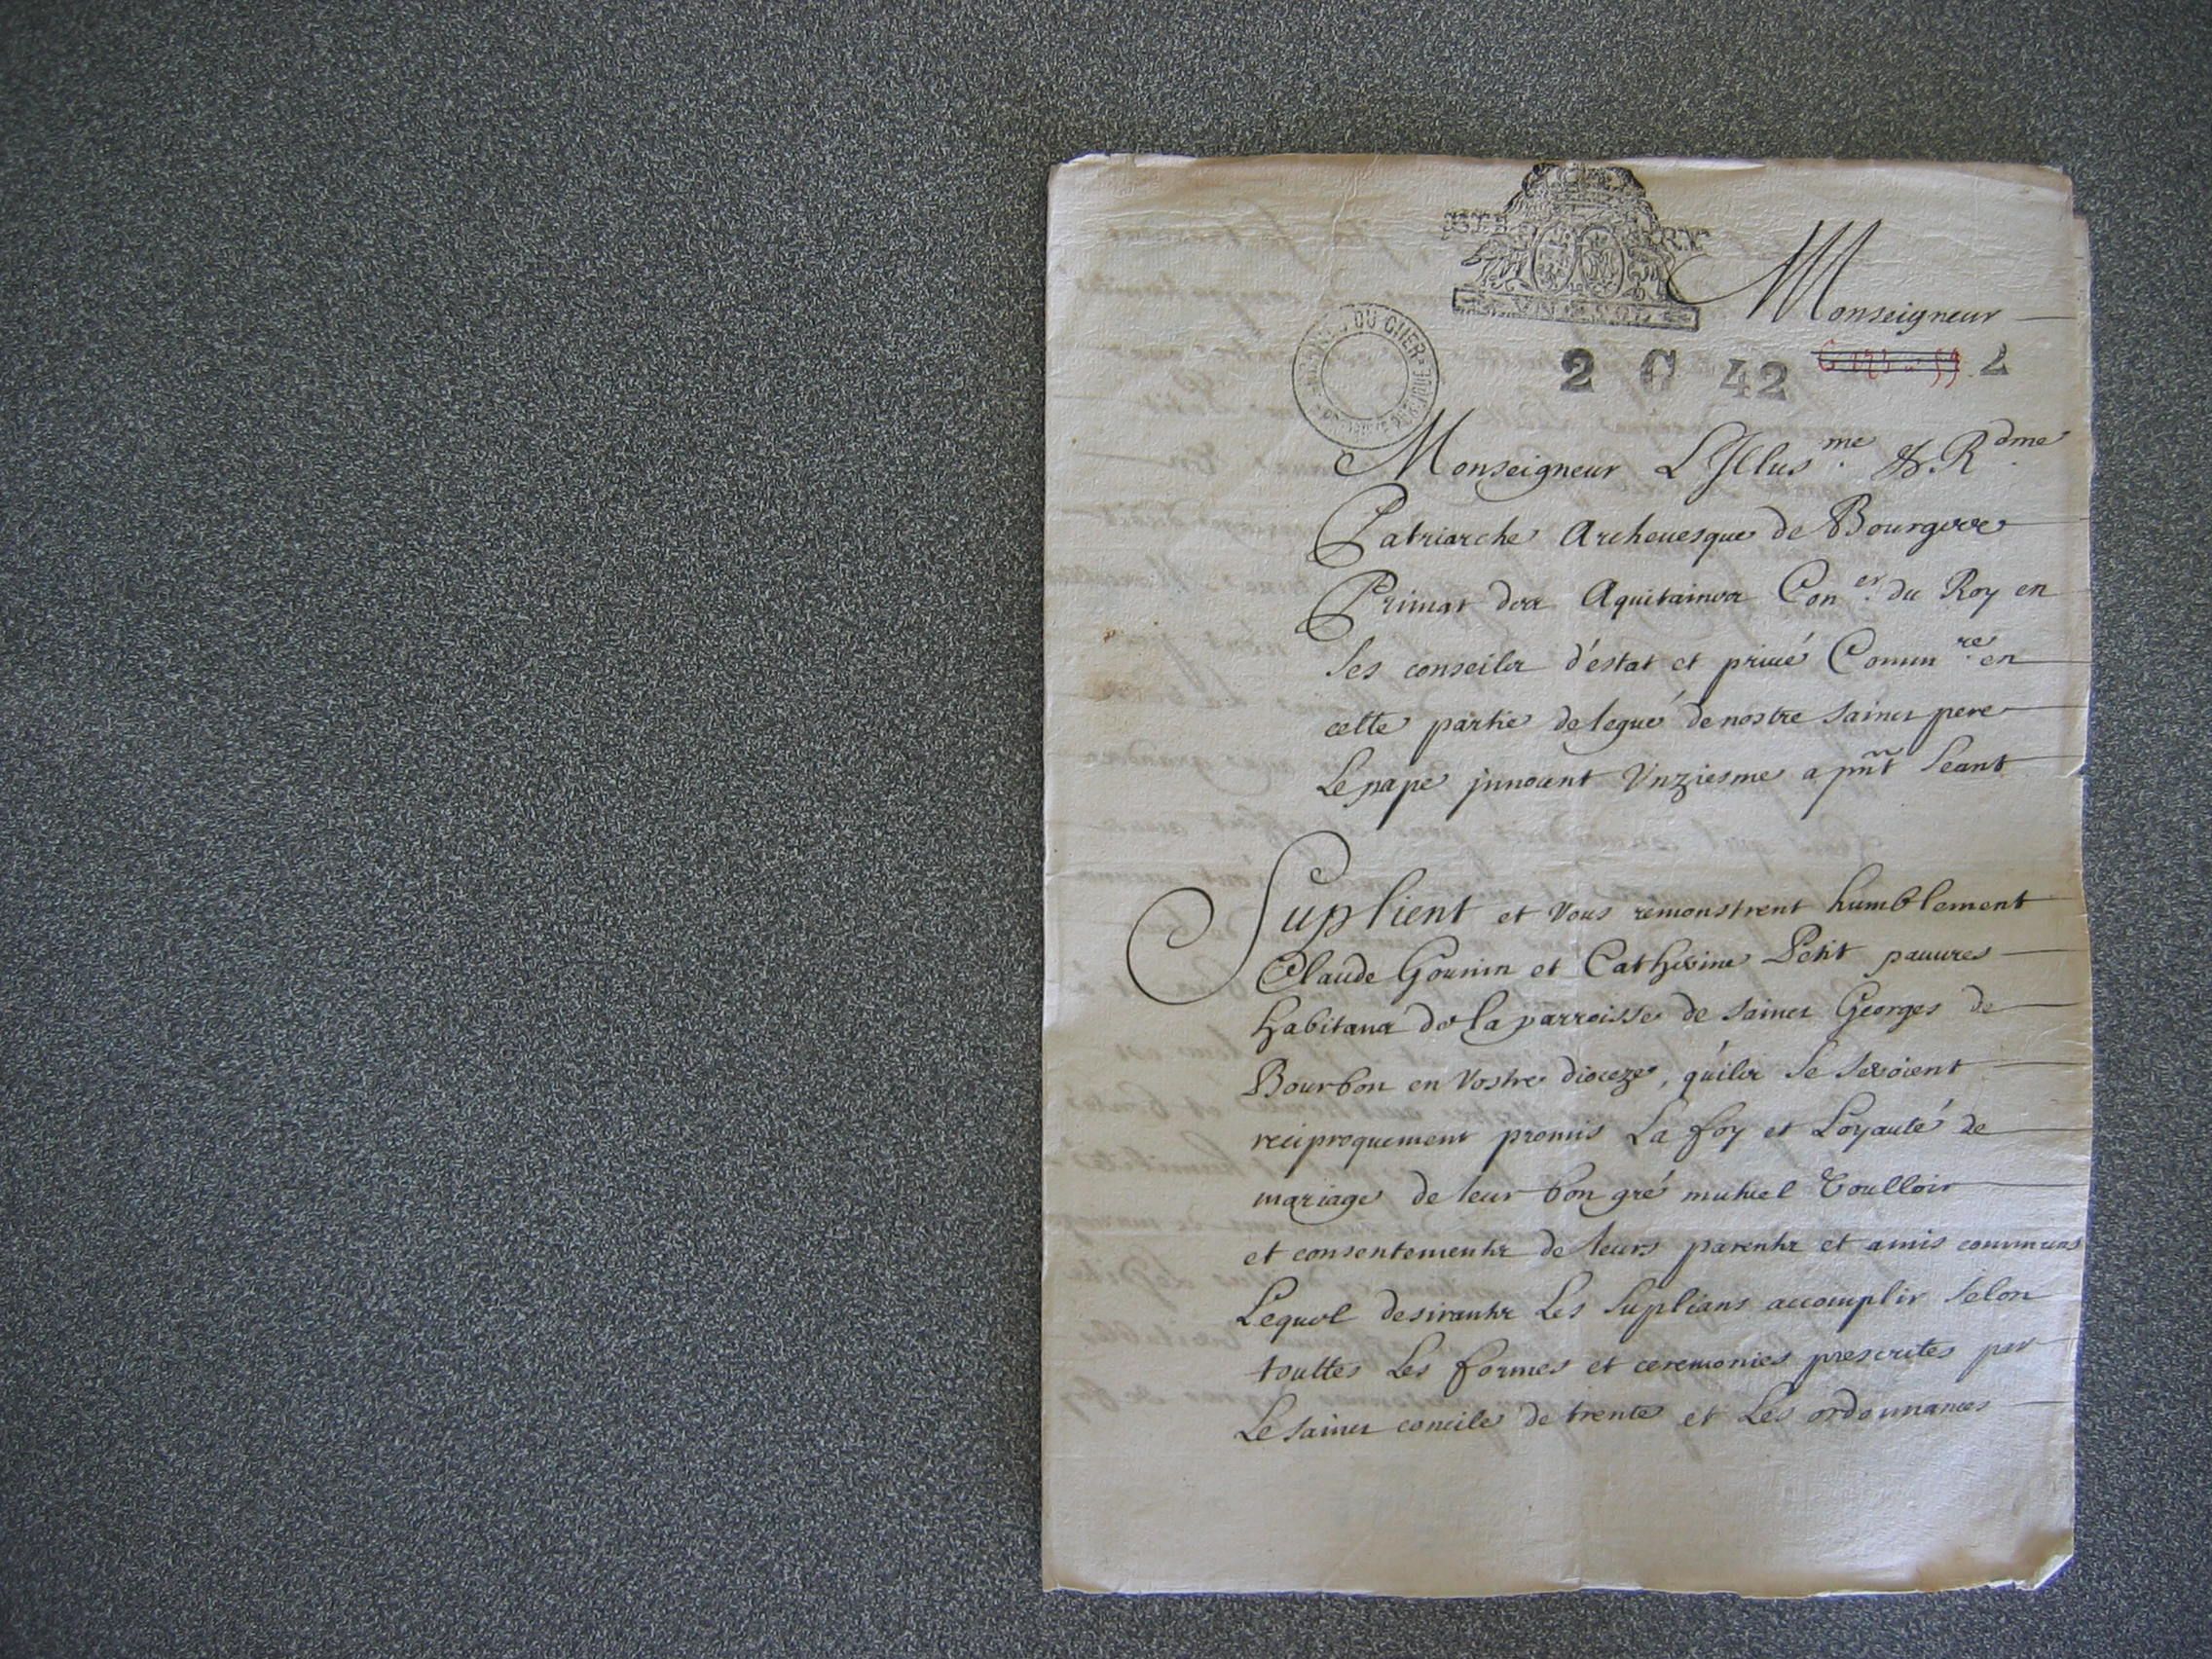 BER RY
UN SOL
Monseigneur
ARCHIVES DU CHER
2 G 42 2
Monseigneur L'Illus.me & R.dme
Patriarche Archeuesque de Bourges
Primat des Aquitaines Con.er du Roy en
ses conseils d'éstat et priué Comm.re en
cette partie delegué de nostre sainct pere
Le pape jnnocent Vnziesme a pñt seant
Suplient et Vous remonstrent humblement
Claude Gounin et Catherine Petit pauures
habitans de la parroisse de sainct Georges de
Bourbon en Vostre dioceze, qu'ils se seroient
reciproquement promis La foy et Loyauté de
mariage de leur bon gré mutuel Voulloir
et consentements de leurs parents et amis communs
Lequel desirants Les suplians accomplir selon
touttes Les formes et ceremonies prescrites par
Le sainct concile de trente et Les ordonnances